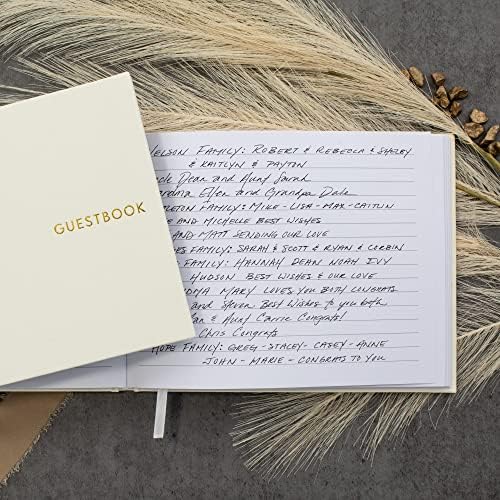 GUESTBOOK
NELSON FAMILY: ROBERT & REBECCA & SHELBY
& KAITLYN & PAYTON
Dean and Aunt Sarah
Grandma Ellen and Grandpa Dale
FAMILY: MIKE - LISA - MAX - CAITLIN
AND MICHELLE BEST WISHES
AND MATT SENDING OUR LOVE
FAMILY: SARAH & SCOTT & RYAN & CORBIN
FAMILY: HANNAH DEAN NOAH IVY
HUDSON BEST WISHES & OUR LOVE
MARY LOVES YOU BOTH CONGRATS
and Steven Best Wishes to you both
& Aunt Carrie Congrats!
Chris Congrats
HOPE FAMILY: GREG - STACEY - CASEY - ANNE
JOHN - MARIE - CONGRATS TO YOU